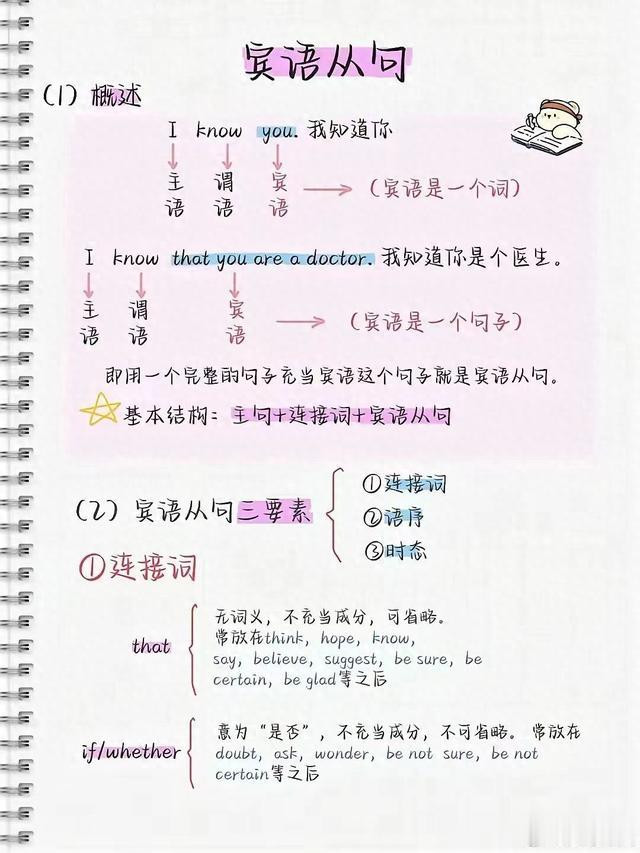 宾语从句
(1) 概述
I know you. 我知道你
主语 谓语 宾语 (宾语是一个词)
I know that you are a doctor. 我知道你是个医生。
主语 谓语 宾语 (宾语是一个句子)
即用一个完整的句子充当宾语这个句子就是宾语从句。
基本结构：主句+连接词+宾语从句
(2) 宾语从句三要素
①连接词
②语序
③时态
①连接词
that
无词义，不充当成分，可省略。
常放在think, hope, know,
say, believe, suggest, be sure, be
certain, be glad等之后
if/whether
意为“是否”，不充当成分，不可省略。常放在
doubt, ask, wonder, be not sure, be not
certain等之后